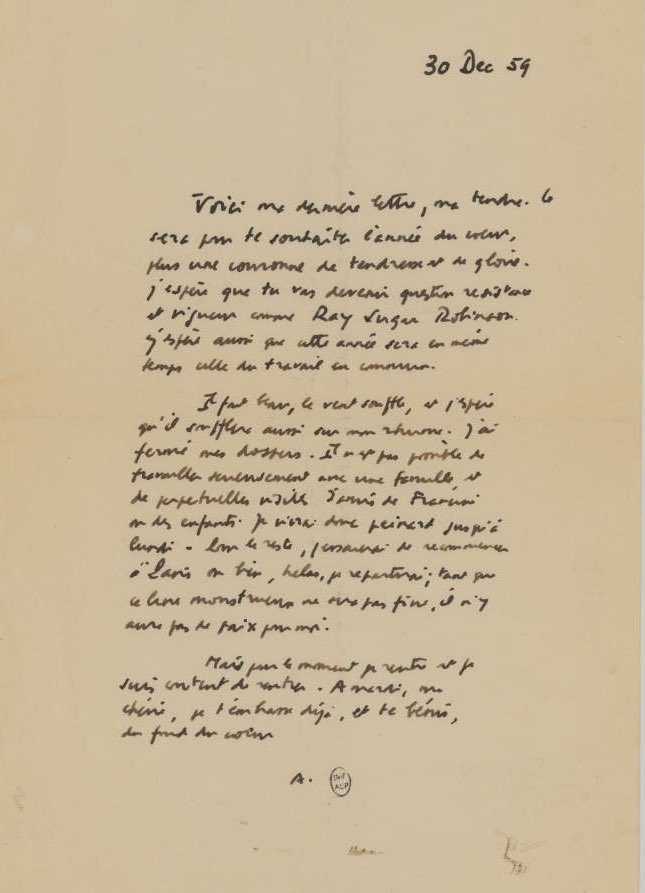 30 Dec 59
Voici ma dernière lettre, ma tendre. Ce
sera pour te souhaiter l'année du coeur,
plus une couronne de tendresse et de gloire.
J'espère que tu vas devenir question resistance
et vigueur comme Ray Sugar Robinson.
J'espère aussi que cette année sera en même
temps celle du travail en commun.
Il fait beau, le vent souffle, et j'espère
qu'il soufflera aussi sur mon rhume. J'ai
fermé mes dossiers. Il n'est pas possible de
travailler serieusement avec une famille et
de perpetuelles visites d'amis de Francine
ou des enfants. Je vivrai donc peinard jusqu'à
lundi. Pour le reste, j'essaierai de recommencer
à Paris ou bien, helas, je repartirai; tant que
ce livre monstrueux ne sera pas fini, il n'y
aura pas de paix pour moi.
Mais pour le moment je rentre et je
suis content de rentrer. A mardi, ma
chérie, je t'embrasse déjà, et te bénis,
du fond du coeur
A.